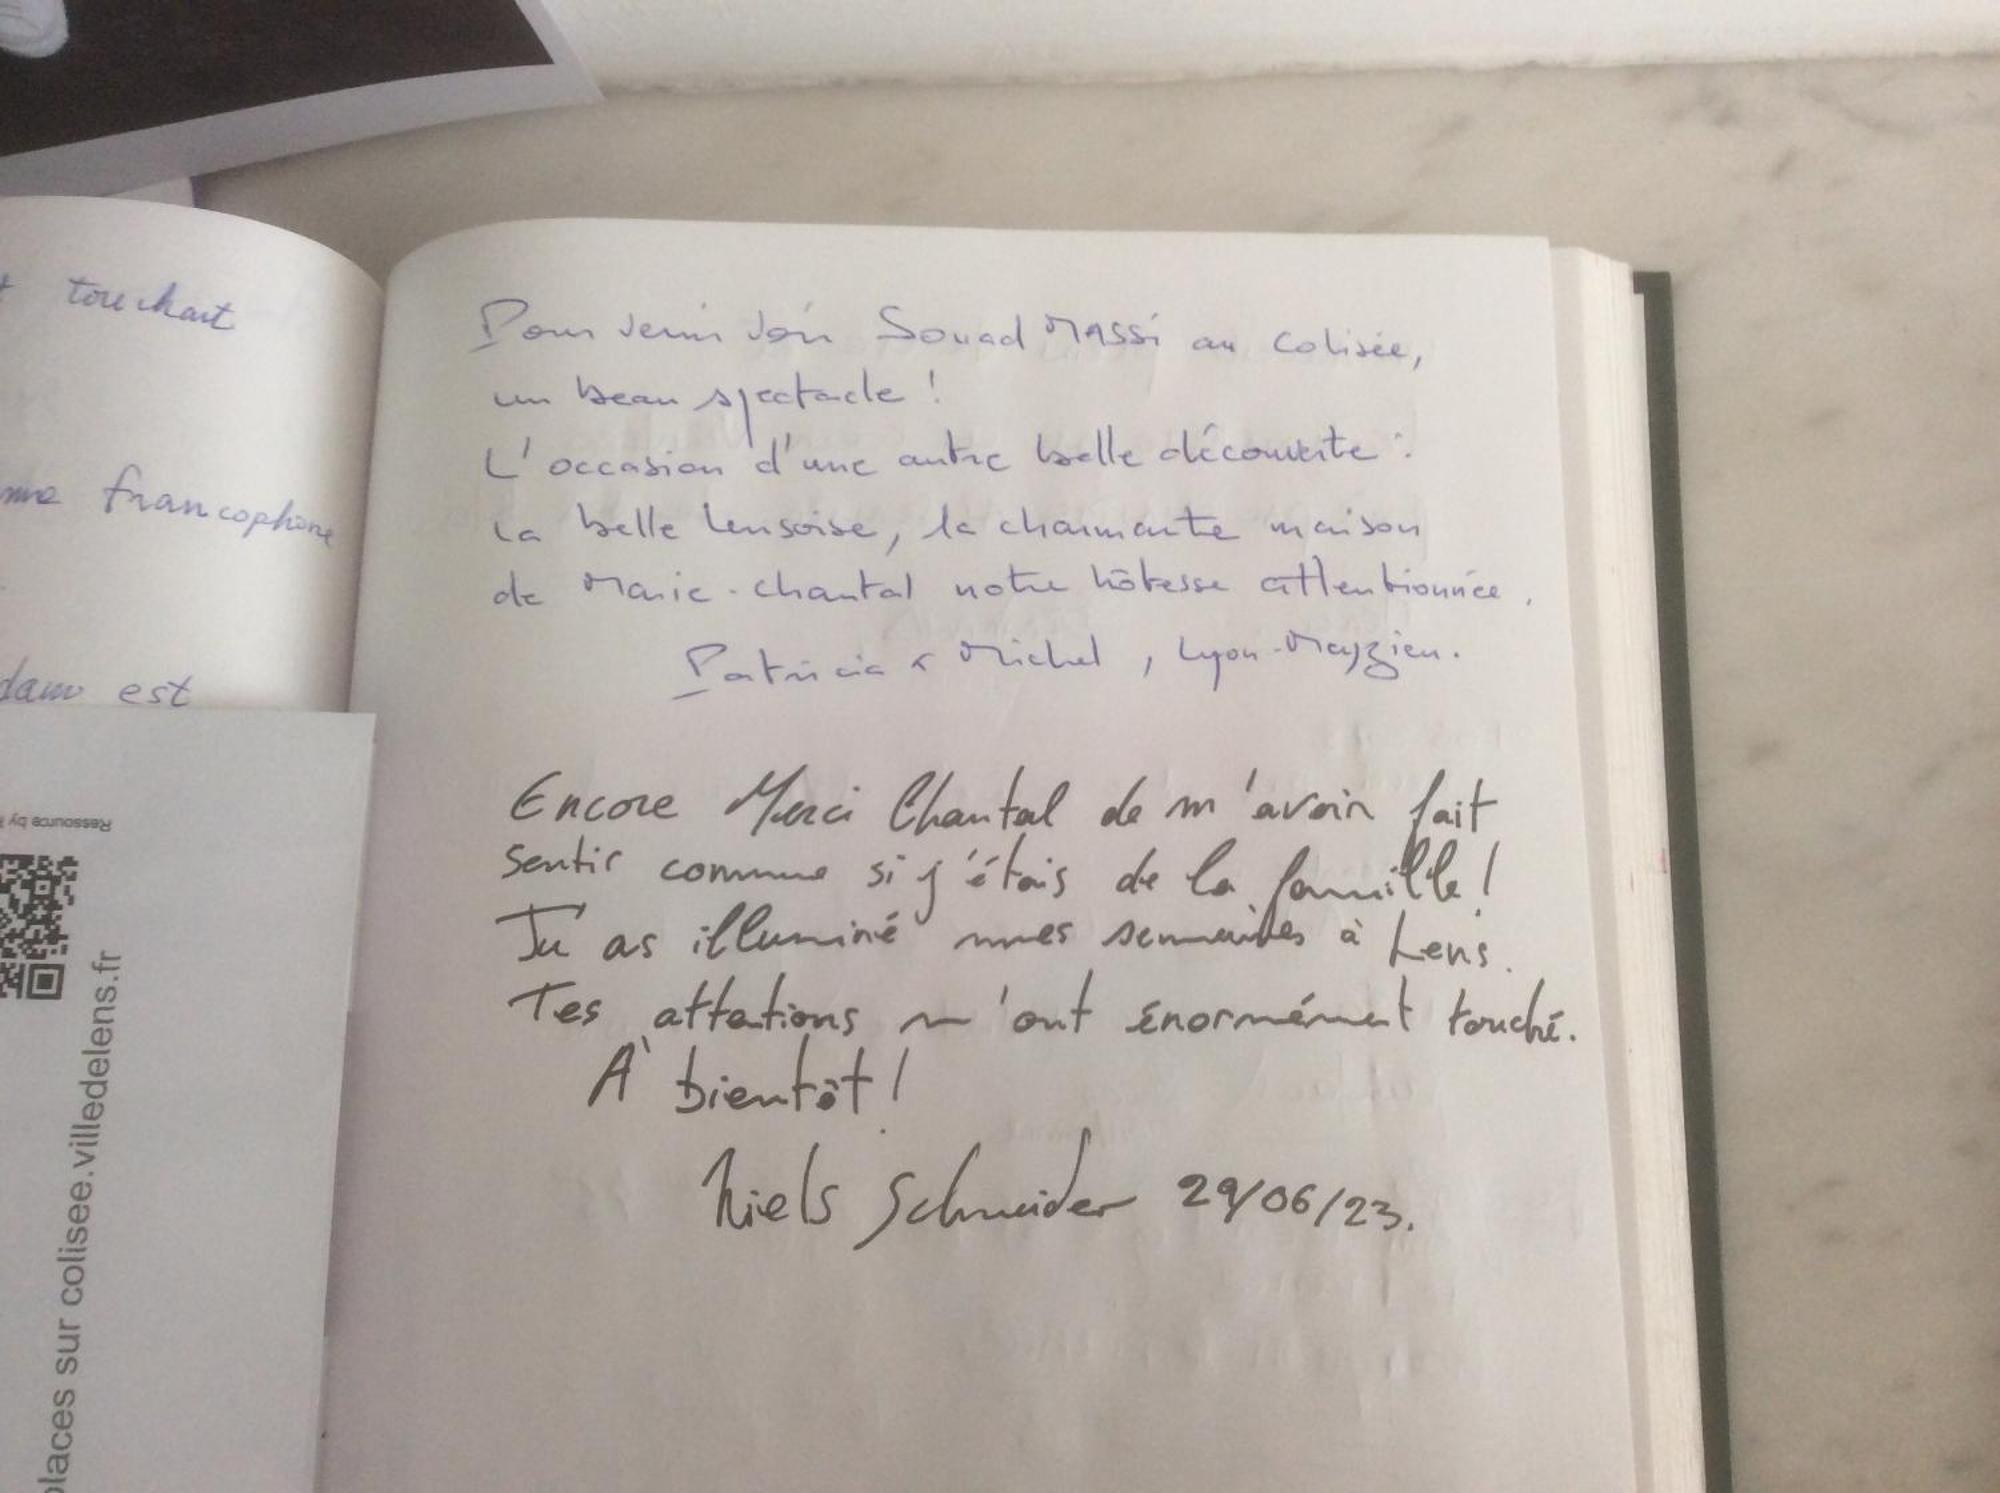 touchart
francophone
est
Ressource by
places sur colisee.villedelens.fr
Pour venir voir Souad MASSi au Colisée,
un beau spectacle !
L'occasion d'une autre belle découverte :
La belle Lensoise, la charmante maison
de Marie-Chantal notre hôtesse attentionnée.
Patricia & Michel, Lyon-Meyzieu.
Encore Merci Chantal de m'avoir fait
sentir comme si j'étais de la famille !
Tu as illuminé mes semaines à Lens.
Tes attations m'ont énormément touché.
À bientôt !
Niels Schneider 29/06/23.